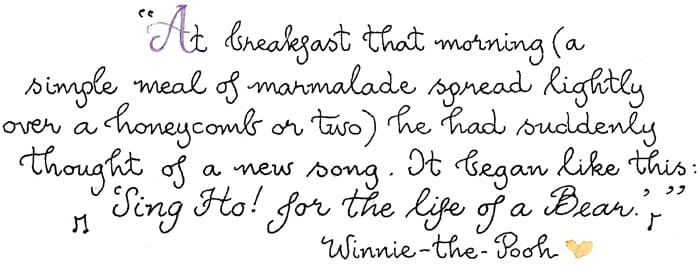 “At breakfast that morning (a
simple meal of marmalade spread lightly
over a honeycomb or two) he had suddenly
thought of a new song. It began like this:
‘Sing Ho! for the life of a Bear.’”
Winnie-the-Pooh